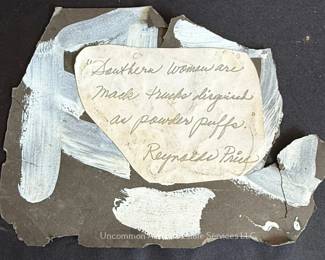 "Southern women are
Mack trucks disguised
as powder puffs."
Reynolds Price
Uncommon Estate Services LLC